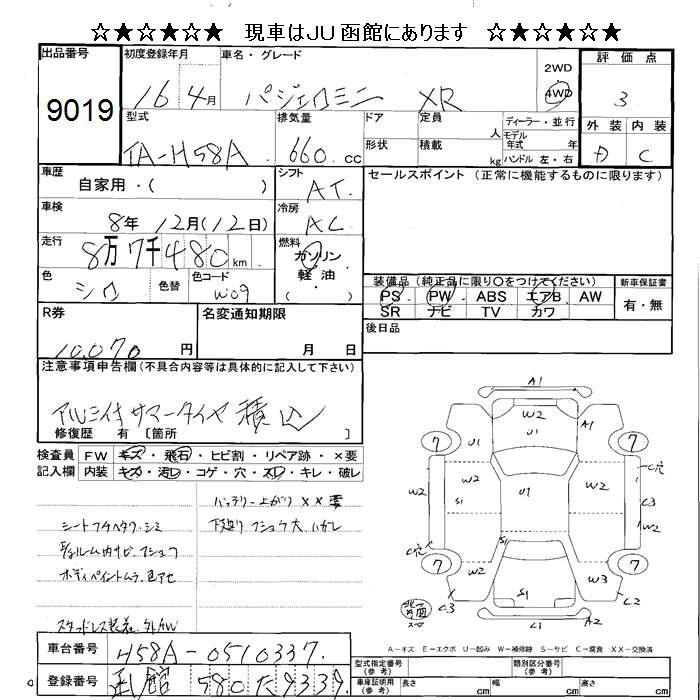 ☆★☆★☆★ 現車はJU函館にあります ☆★☆★☆★
出品番号 初度登録年月 車名・グレード 2WD 4WD 評価点
9019 16 4月 パジェロミニ XR 3
型式 排気量 ドア 定員 人 ディーラー・並行 外装 内装
形状 積載 kg モデル年式 年 ハンドル 左・右
TA-H58A 660 cc D C
車歴 自家用・( ) シフト AT セールスポイント (正常に機能するものに限ります)
車検 8年 12月(12日) 冷房 AC
走行 8万7千480km 燃料 ガソリン 軽油・( )
色 シロ 色替 色コード W09
装備品(純正品に限り○をつけてください) 新車保証書
PS PW ABS エアB AW 有・無
SR ナビ TV カワ
R券 10.070 円 名変通知期限 月 日 後日品
注意事項申告欄(不具合内容等は具体的に記入して下さい)
アルミ付サマータイヤ積込
修復歴 有 〔箇所 〕
検査員 FW キズ・飛石・ヒビ割・リペア跡・×要
記入欄 内装 キズ・汚レ・コゲ・穴・スレ・キレ・破レ
バッテリー上がり ××要
シートフチヘタり・シミ 下廻り フショク大 ハガレ
ルーム内サビ フショク
ボディペイントムラ 色アセ
スタッドレス装着 外AW
A1
W2
U1 A1
7 7
C穴
W2 W2 S1 U1 W2 C3
W2
C穴 S1
7 7
W2 W3
C3 S1 C2
C1 A2
A-キズ E-エクボ U-凹み W-補修跡 S-サビ C-腐食 XX-交換済
車台番号 H58A-0510337 型式指定番号(参考) 類別区分番号(参考)
登録番号 函館 580 た 9339 車庫証明用(参考) 長さ cm 幅 cm 高さ cm